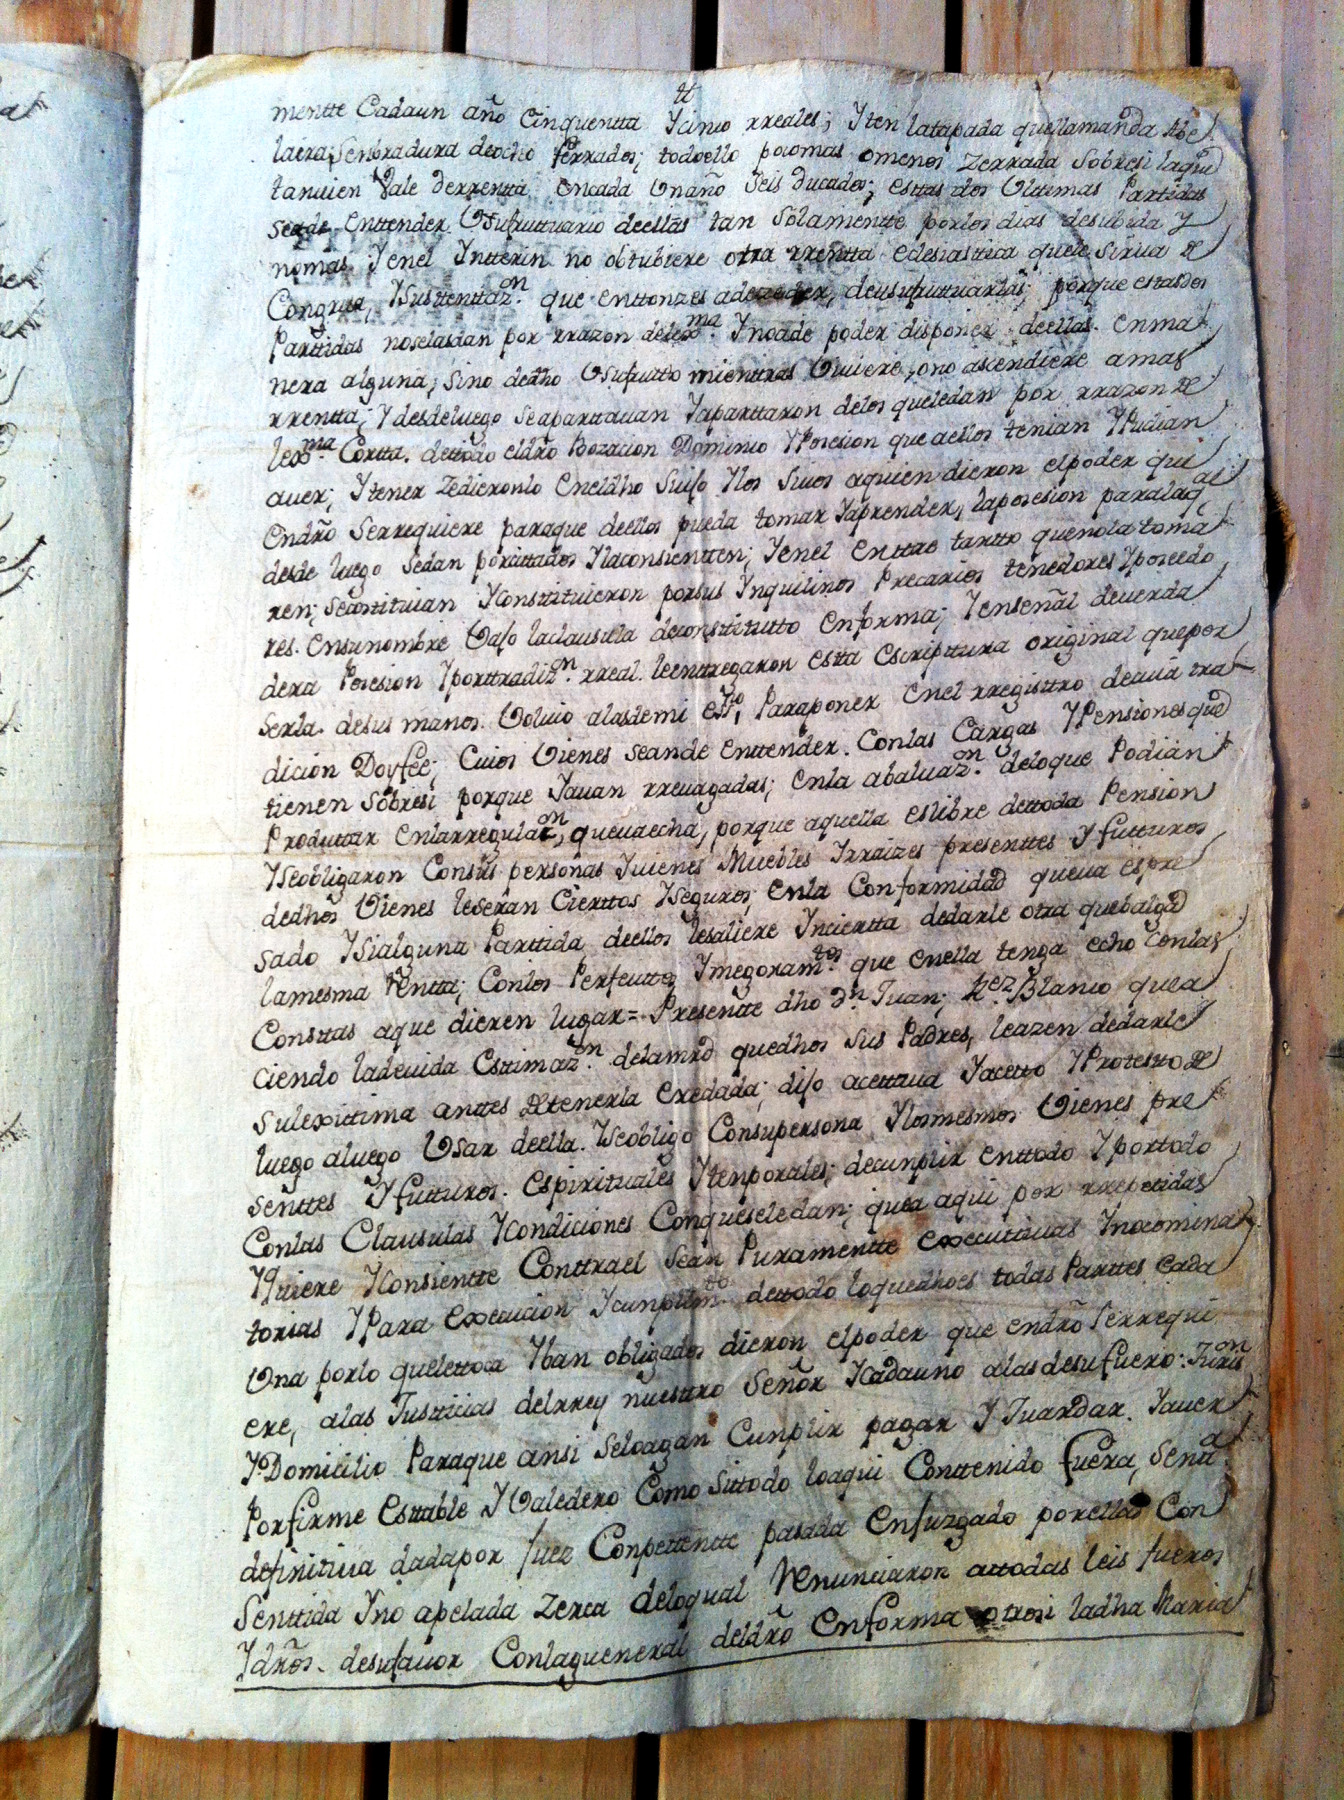 tt
mentte Cadaun año Cinquentta Ycinco rreales; Yten latapada quellamanda
laeira, Senbradura deocho ferrados; todoello pocomas omenos Zerrada Sobresi laque
tanuien Vale derrentta encada Unaño Seis ducados; esttas dos Ulttimas Parttidas
seade Enttender Usufruttuario deellas tan Solamentte porlos dias desubida y
nomas Yenel Yntterin no obtubiere otra rrentta eclesiasttica quele Sirua de
Congrua, Ysusttenttazon. que enttonzes adezeder, deusufruttuarlas; porque estasdos
Parttidas noselasdan por rrazon delexma. Ynoade poder disponer deellas enma
nera alguna; Sino dedho Usufrutto mienttras Viuiere, ono ascendiere amas
rrentta; Y desdeluego Seaparttauan Yaparttaron delos queledan por rrazon de
lexma. Cortta. dettodo eldro Bozacion Dominio YPosesion que aellos tenian YPudian
auer; Ytener Zedieronlo Eneldho Suijo Ylos Suios aquien dieron elpoder que
Endro Serrequiere paraque deellos pueda tomar Yaprender, laposesion paralaql
desde luego Sedan porcittados Ylaconsientten; Yenel Enttre tantto quenola toma
ren; Seconstituian Yconsttituieron porsus Ynquilinos Precarios tenedores Yposeedo
res. Ensunombre Vajo laclausula deconsttitutto Enforma; Yenseñal deuerda
dera Posesion Yporttradizn. rreal. leenttregaron estta Escripttura original quepor
Serla. desus manos. Voluio alasdemi essno, Paraponer Enel rregisttro deauia tra
dicion Doyfee; Cuios Vienes Seande Enttender. Conlas Cargas YPensiones que
tienen Sobresi porque Yauan rreuagadas; Enla abaluazon. deloque Podian
Producttar Enlarregulaon, queuaecha, porque aquella eslibre dettoda Pension
Yseobligaron Consus personas Yuienes Muebles Yrraizes presenttes Y futturos
dedhos Vienes leseran Cierttos Yseguros; Enla Conformidad queua espre
sado Ysialguna Parttida deellos lesaliere Yncientta dedarle otra quebalga
lamesma rrentta; Conlos Perfeuttos Ymegoramtos. que Enella tenga echo Conlas
Consttas aque dieren lugar = Presentte dho Dn. Juan; Frez Blanco quea
Ciendo ladeuida Esttimazon. delamrd quedhos Sus Padres, leazen dedarle
Sulexittima anttes detenerla Eredada; dijo acettaua Yacetto YProtestto de
luego aluego Usar deella. Yseobligo Consupersona Ylosmesmos Vienes pre
senttes Yfutturos. Espirituales Ytenporales; decunplir Enttodo Yportodo
Conlas Clausulas Ycondiciones Conqueseledan; quea aqui por rrepetidas
YQuiere Yconsientte Conttrael Sean Puramentte executtiuas Ynocomina
torias YPara Execucion Ycunplimto. dettodo loquedhoes todas Parttes Cada
Una porlo quelettoca Yban obligados dieron elpoder que Endro Serrequi
ere, alas Justticias delrrey nuesttro Señor Ycadauno alasdesufuero Jurison
YDomicilio Paraque ansi Seloagan Cunplir pagar Y Juardar. Yauer
Porfirme Esttable YValedero Como Sittodo loaqui Conttenido fuera, Sena
definitiua dadapor Juez Conpettentte pasada Enjuzgado porellas Con
Senttida Yno apelada Zerca deloqual Renunciaron attodas leis fueros
Ydros. desufauor Conlagueneral deldro Enforma otrosi ladha Maria